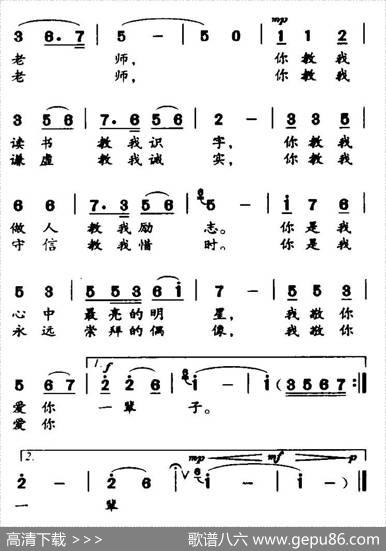 mp
3 6. 7 | 5 - | 5 0 | 1 1 2
老 师， 你 教 我
老 师， 你 教 我
3 5 6 | 7. 6 5 6 | 2 - | 3 3 5
读 书 教 我 识 字， 你 教 我
谦 虚 教 我 诚 实， 你 教 我
6 6 | 7. 3 5 6 | 6 5 - | i 7 6
做 人 教 我 励 志。 你 是 我
守 信 教 我 惜 时。 你 是 我
5 3 | 5 5 3 6 i | 7 - | 5 5 3
心 中 最 亮 的 明 星， 我 敬 你
永 远 崇 拜 的 偶 像， 我 敬 你
1. f
5 6 7 | 2 2 6 | 6 i - | i (3 5 6 7 :||
爱 你 一 辈 子。
爱 你
2. mp mf p
2 - | 2 6 | i 6 i - | i - ) ||
一 辈
高清下载 >>> 歌谱八六 www.gepu86.com